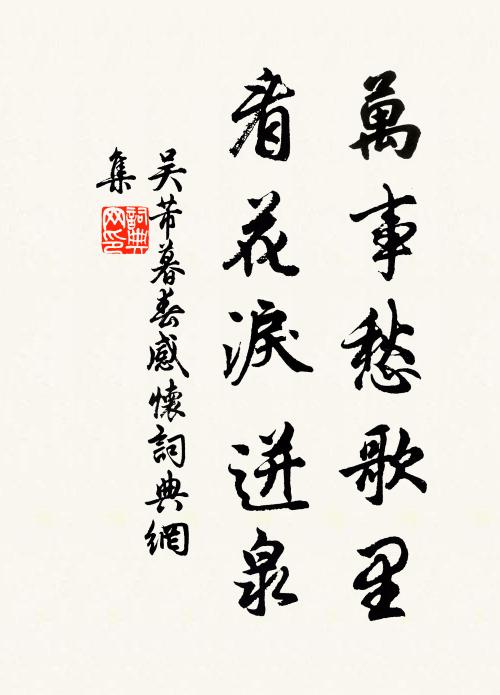 萬事愁歌里
看花淚迸泉
吴芾暮春感懷詞典網
集
詞典
网印